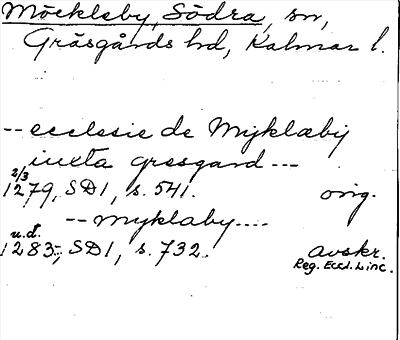 Möckleby, Södra, sn,
Gräsgårds hd, Kalmar l.
-- ecclesie de Myklæby
iuxta gresgard ---
2/3
1279, SD1, s. 541. orig.
-- myklaby....
u.d.
1283-, SD1, s. 732. avskr.
Reg. Eccl. Linc.